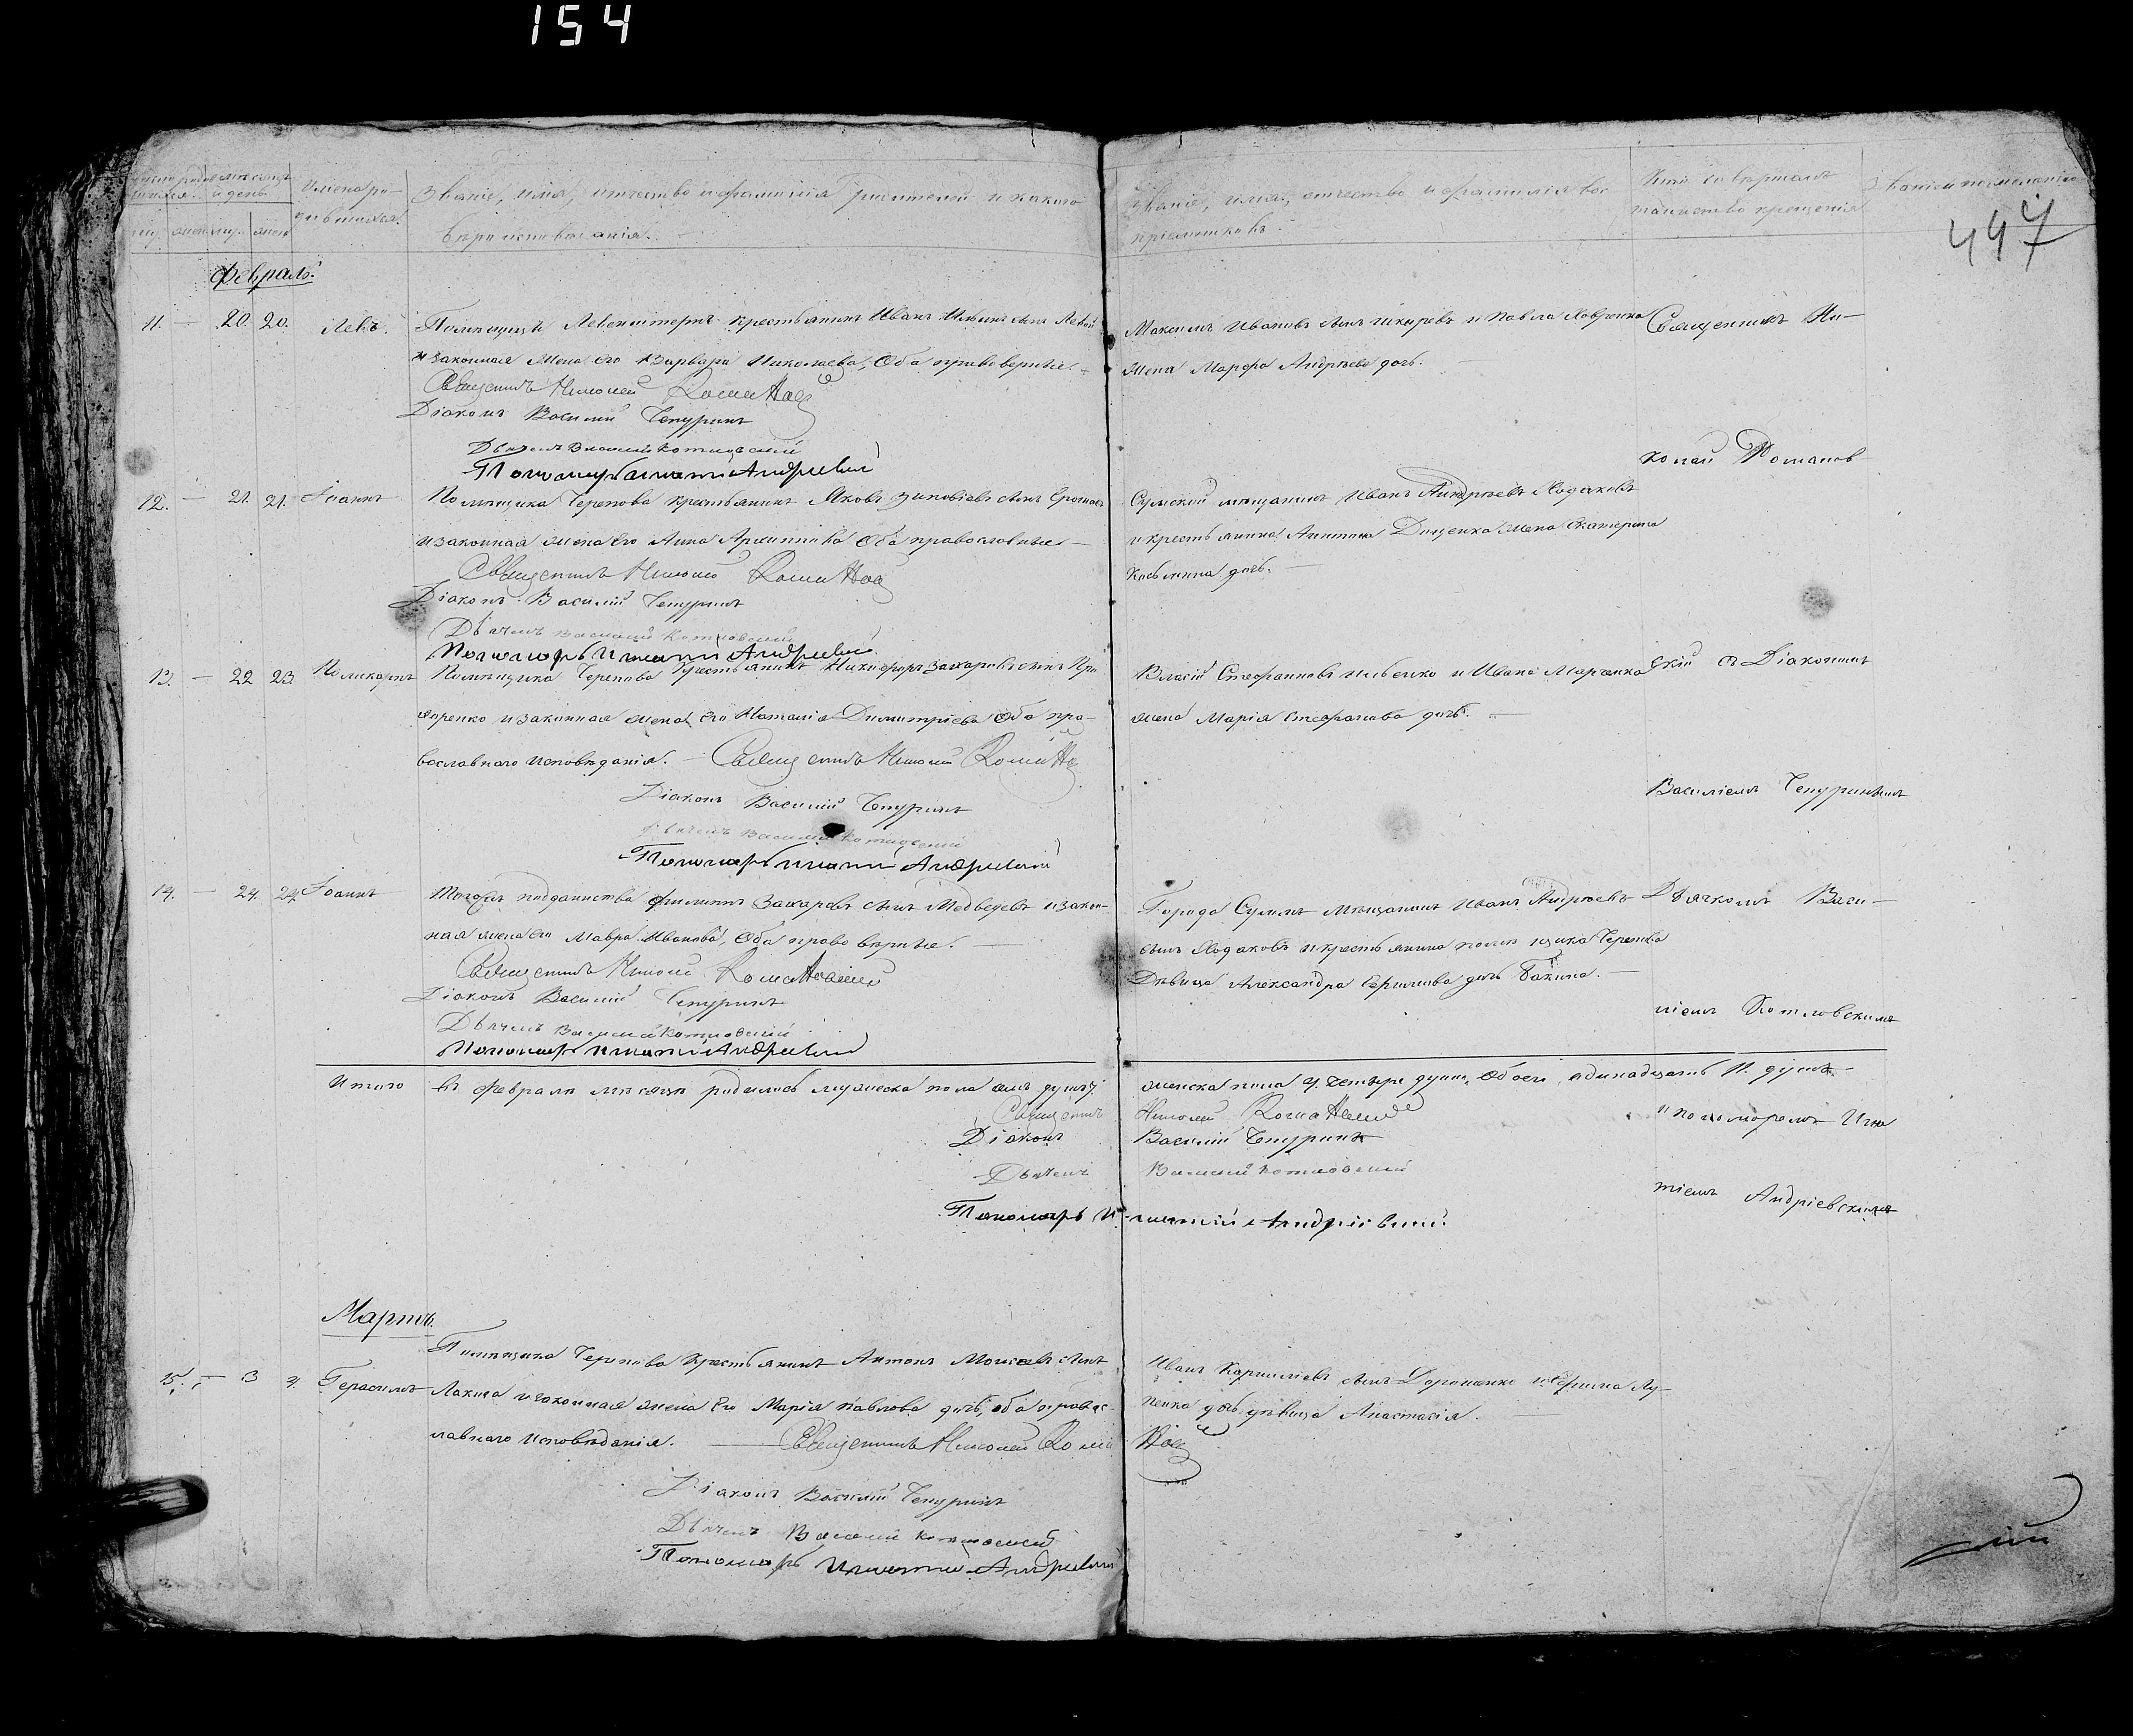 154
447
Число родив-
шихся.
Мѣсяцъ
и день
Имена ро-
дившихся.
Званіе, имя, отчество и фамилія родителей и какого
вѣроисповѣданія.
Званіе, имя, отчество и фамилія вос-
пріемниковъ.
Кто совершалъ
таинство крещенія
муж. женс. муж. женс.
Февраль.
11. — 20. 20. Левъ.
крестьянинъ Иванъ Ильинъ сынъ
и законная жена его Варвара Николаева, Оба правоверные.
Священникъ Николай
Діаконъ Василій Чепуринъ
Дьячекъ Василій Котловскій
Пономарь Игнатій Андріевскій
Максимъ Ивановъ сынъ и Павла
жена Марфа Андрѣева дочь.
Священникъ Ни-
колай Романов-
12. — 21. 21. Іоаннъ
Помѣщика Черепова крестьянинъ Яковъ Зиновіевъ сынъ
и законная жена его Анна Оба православные —
Священникъ Николай
Діаконъ Василій Чепуринъ
Дьячекъ Василій Котловскій
Пономарь Игнатій Андріевскій
Сумской мѣщанинъ Иванъ Андрѣевъ Ходаковъ
и крестьянина Антона Доценка жена Екатерина
Косьмина дочь.
13. — 22 23 Поликарпъ
Помѣщика Черепова крестьянинъ Никифоръ Захаріевъ сынъ
и законная жена его Наталія Димитріева Оба пра-
вославнаго исповѣданія. — Священникъ Николай
Діаконъ Василій Чепуринъ
Дьячекъ Василій Котловскій
Пономарь Игнатій Андріевскій
Власій Стефановъ и Ивана Марченка
жена Марія Стефанова дочь.
скій съ Діакономъ
Василіемъ Чепуринымъ
14. — 24. 24. Іоаннъ
Тогожъ подданства Филиппъ Захаровъ сынъ Медведевъ и закон-
ная жена его Мавра Иванова, Оба правовѣрные.
Священникъ Николай Романовскій
Діаконъ Василій Чепуринъ
Дьячекъ Василій Котловскій
Пономарь Игнатій Андріевскій
Города Сумъ мѣщанинъ Иванъ Андрѣевъ
сынъ Ходаковъ и крестьянина помѣщика Черепова
Дѣвица Александра дочь
Дьячкомъ Васи-
ліемъ Котловскимъ
Итого въ Февралѣ мѣсяцѣ родилось мужеска пола семь душъ 7.
женска пола 4. четыре души, Обоего одинадцать 11. душъ —
Священникъ Николай Романовскій
Діаконъ Василій Чепуринъ
Дьячекъ Василій Котловскій
Пономарь Игнатій Андріевскій.
и пономаремъ Игна
тіемъ Андріевскимъ
Мартъ.
15. — 3 4. Герасимъ
Помѣщика Черепова крестьянинъ Антонъ Моисеевъ сынъ
и законная жена его Марія Павлова дочь, оба правос-
лавнаго исповѣданія. — Священникъ Николай
Діаконъ Василій Чепуринъ
Дьячекъ Василій Котловскій
Пономарь Игнатій Андріевскій
Иванъ Корниліевъ сынъ Дороженко и
дочь дѣвица Анастасія.